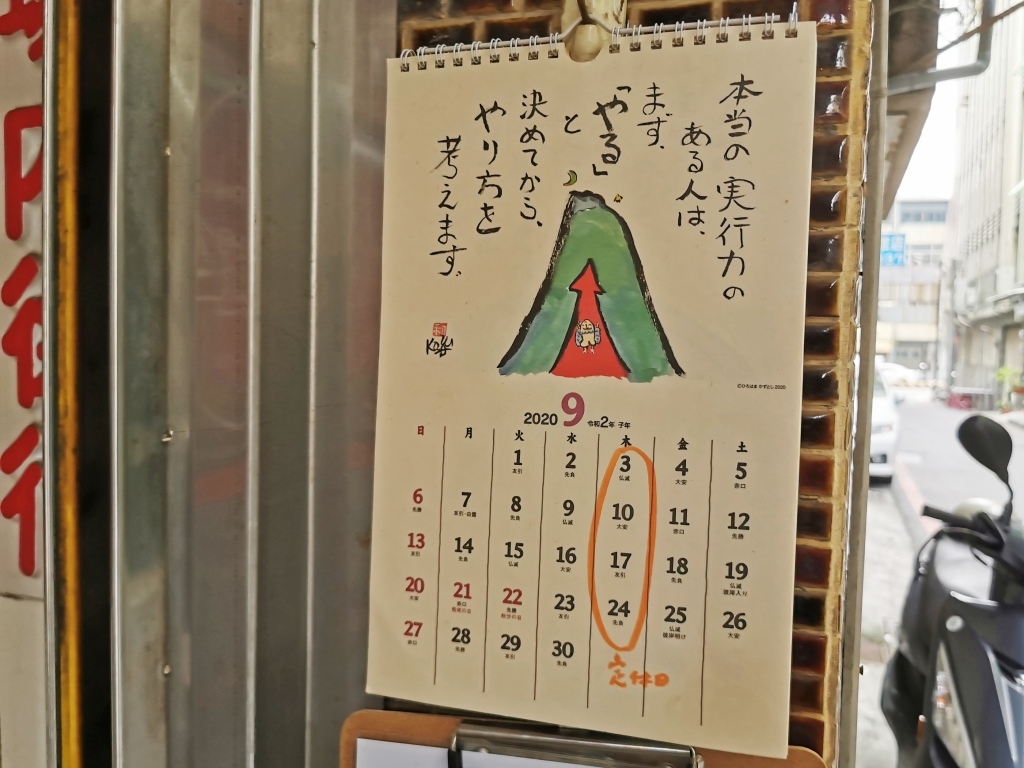 本当の実行力の
ある人は、
まず、
「やる」
と
決めてから、
やり方を
考えます。
©ひろはま かずとし 2020
2020 9 令和2年 子年
日 月 火 水 木 金 土
1 2 3 4 5
友引 先負 仏滅 大安 赤口
6 7 8 9 10 11 12
先勝 友引・白露 先負 仏滅 大安 赤口 先勝
13 14 15 16 17 18 19
友引 先負 仏滅 大安 友引 先負 仏滅
彼岸入り
20 21 22 23 24 25 26
大安 赤口 先勝 友引 先負 仏滅 大安
敬老の日 秋分の日 彼岸明け
27 28 29 30
赤口 先勝 友引 先負
定休日